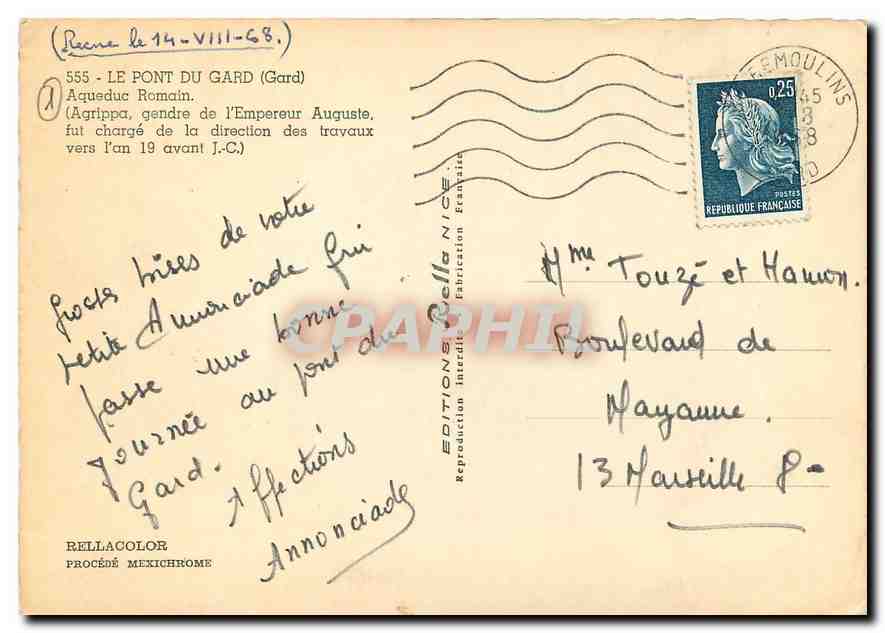 (Recue le 14-VIII-68.)
555 - LE PONT DU GARD (Gard)
1
Aqueduc Romain.
(Agrippa, gendre de l'Empereur Auguste,
fut chargé de la direction des travaux
vers l'an 19 avant J.-C.)
Grosses bises de votre
petite Annonciade qui
passe une bonne
journée au pont du
Gard.
Affections
Annonciade
RELLACOLOR
PROCÉDÉ MEXICHROME
EDITIONS Rella NICE.
Reproduction interdite Fabrication Française
REMOULINS
45
8
0,25
POSTES
REPUBLIQUE FRANÇAISE
Mme Touzé et Hamon.
Boulevard de
Mayanne.
13 Marseille 8-
CPAPHIL